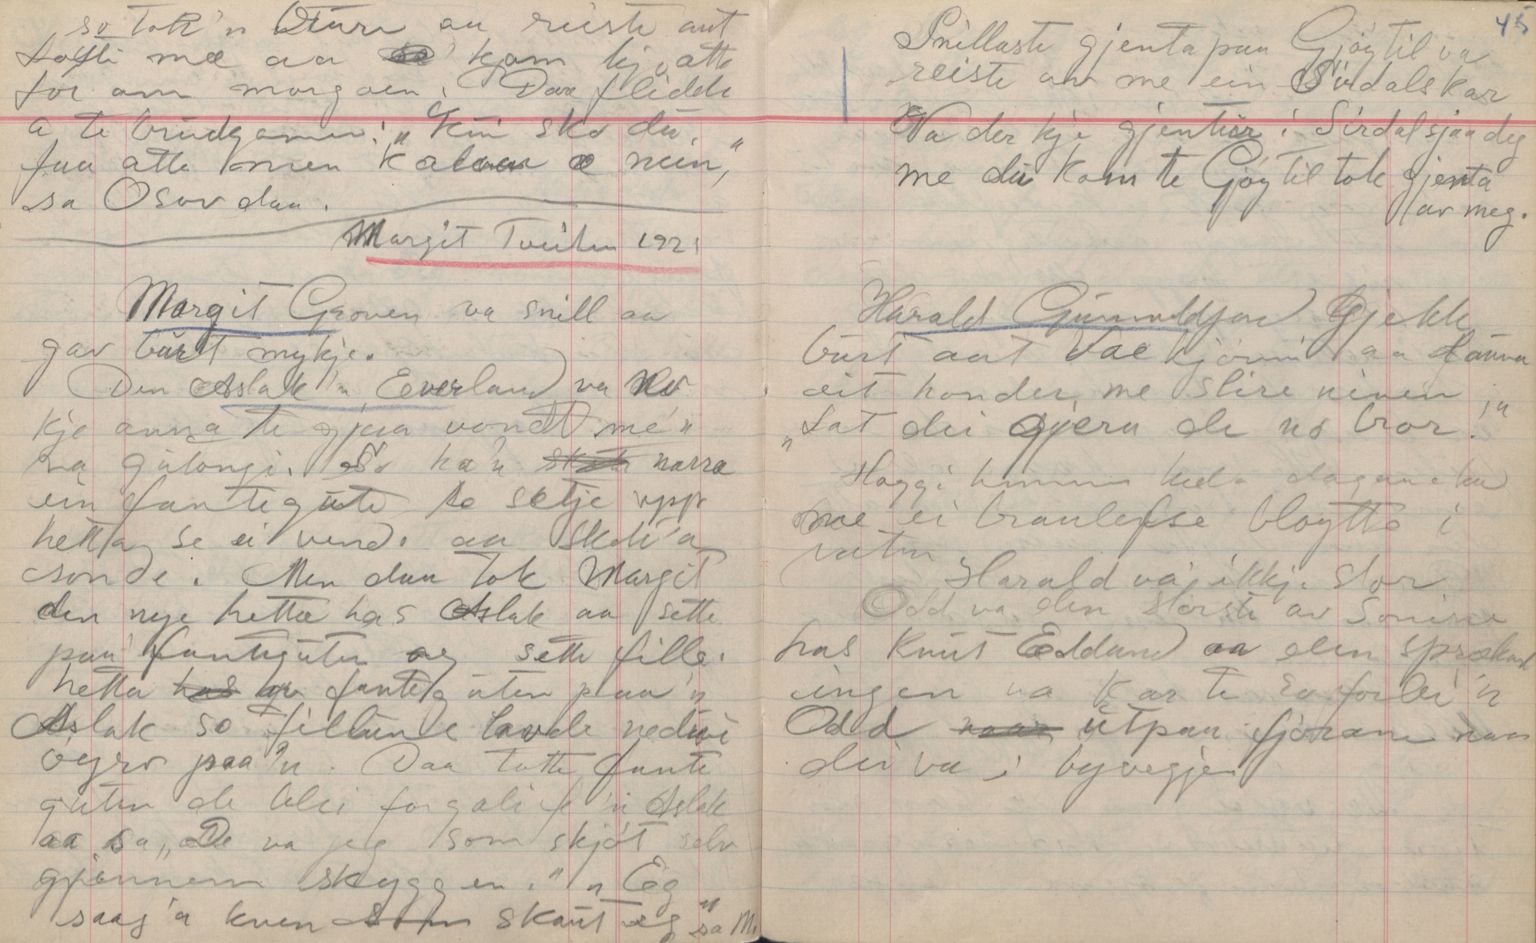 so tok'n Bturu aa reiste aut
Tofti mæ aa kom kj, atte
for om morgoen. Daa flidde
a te brudgamen: "Kun sko du
faa atte men Kalven æ min,"
sa Osov daa.
Margit Tveiten 1921
Margit Groven va snill aa
gav burt mykje.
Den Aslak'n Everland va no
kje anna te gjera vondt me"
na gulongi. So ha'n narra
ein fantegute te setje upp
hetta se ei vend. aa skoti'a
sonde. Men daa tok Margit
den nye hetta has Aslak aa sette
paa fanteguten og sette fille.
hetta fanteguten paa'n
Aslak so fillune lavde nedivi
øygro paa'n. Daa totte fante
guten de blei for gali f'n Aslak
aa sa, "De va jeg som skjøt selv
gjønnem skyggen." "Eg
saag'a kven skaut eg" sa M.
45
Snillaste gjenta paa Gjøytil va
reiste av me ein Sirdalskar
Va der kje gjentur i Sirdal sjaa deg
me du kom te Gjøytil tok gjenta
av meg.
Harald Gunnuldjord Gjekk
burt aat bae bjønn aa daura
eit honder me slire niven
"Lat dei gjera de no bror."
Haggi
mæ ei braulefse bløytte i
vatn.
Harald va ikkje stor
Odd va den største av Sønine
has Knut Eddund aa den sprækast
ingen va kar te ra forbi'n
Odd utpaa fjøranne naar
dei va i byvegjen